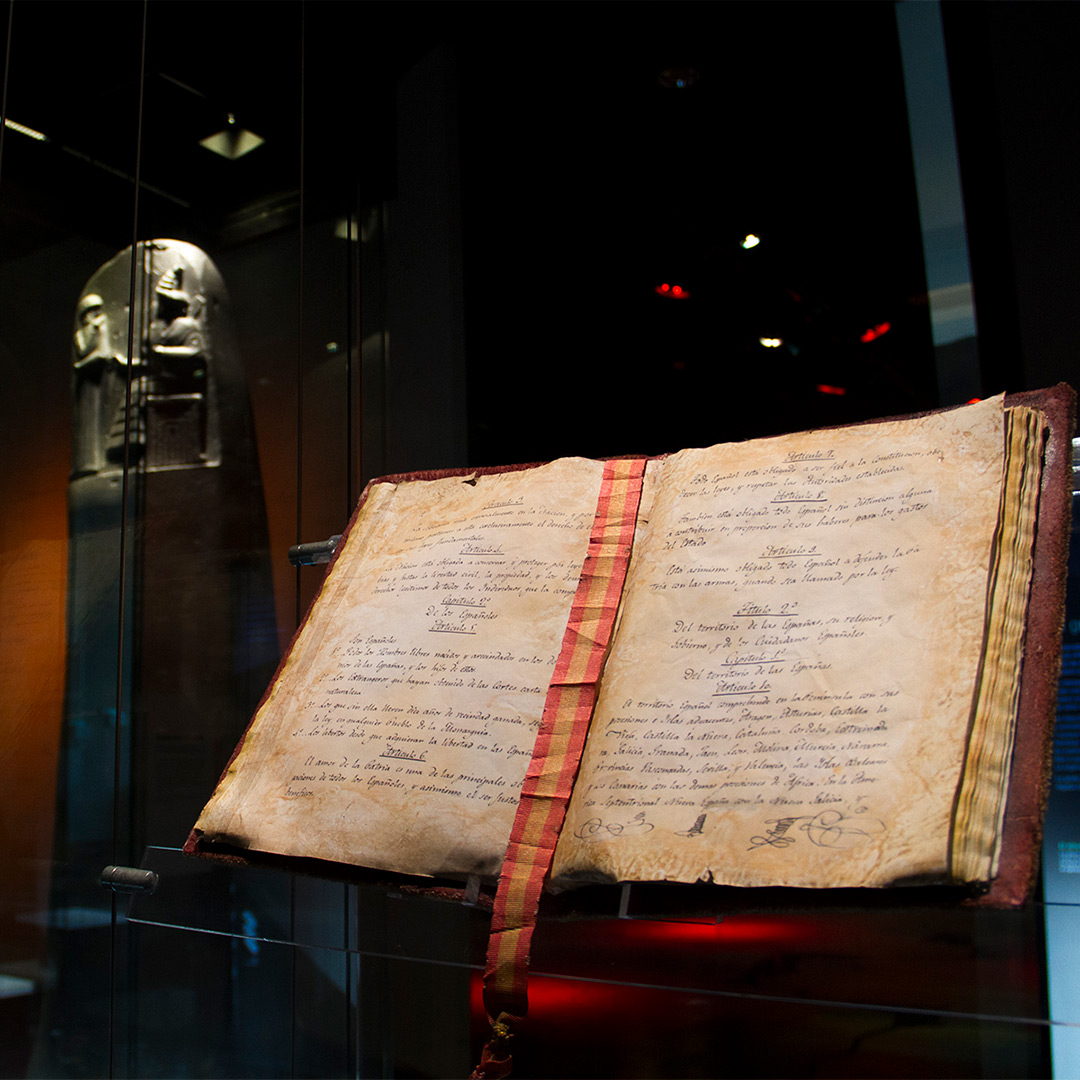 Artículo 3.
La soberanía reside esencialmente en la Nación, y por
lo mismo pertenece a esta exclusivamente el derecho de
leyes fundamentales.
Artículo 4.
La Nacion está obligada a conservar y proteger por leyes
sabias y justas la libertad civil, la propiedad, y los demas
derechos legítimos de todos los Individuos que la compo
Capítulo 2º
De los Españoles
Artículo 5.
Son Españoles
1º Todos los Hombres libres nacidos y avecindados en los do
minios de las Españas, y los hijos de ellos
2º Los Extrangeros que hayan obtenido de las Cortes carta
naturaleza
3º Los que sin ella lleven diez años de vecindad ganada, seg
la ley, en cualquier Pueblo de la Monarquía.
4º Los libertos desde que adquieran la libertad en las Españas
Artículo 6.
El amor de la Patria es una de las principales o
gaciones de todos los Españoles, y asimismo el ser justos
beneficos.
Artículo 7.
Todo Español está obligado a ser fiel a la constitucion, obe
decer las leyes, y respetar las Autoridades establecidas.
Artículo 8.
Tambien está obligado todo Español sin distincion alguna
a contribuir en proporcion de sus haberes para los gastos
del Estado
Artículo 9.
Está asimismo obligado todo Español a defender la Pa
tria con las armas, quando sea llamado por la ley.
Título 2º
Del territorio de las Españas, su religion, y
Gobierno, y de los Ciudadanos Españoles
Capítulo 1º
Del territorio de las Españas.
Artículo 10.
El territorio Español comprehende en la Península con sus
posesiones e Islas adyacentes, Aragon, Asturias, Castilla la
Vieja, Castilla la Nueva, Cataluña, Cordoba, Extremadu
ra, Galicia, Granada, Jaen, Leon, Molina, Murcia, Navarra,
Provincias Vascongadas, Sevilla, y Valencia, las Islas Baleares
y las Canarias con las demas posesiones de Africa. En la Amé
rica Septentrional Nueva España con la Nueva Galicia, y